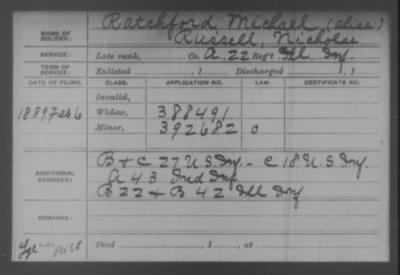 NAME OF SOLDIER: Ratchford Michael, (alias)
Russell, Nicholas
SERVICE: Late rank, Co. A, 22 Reg't Ill. Inf.
TERM OF SERVICE: Enlisted , 1 Discharged , 1
DATE OF FILING. CLASS. APPLICATION NO. LAW. CERTIFICATE NO.
Invalid,
1889 Feb 6 Widow, 388491
Minor, 392682 o
ADDITIONAL SERVICES: B + C 27 U.S. Inf. - C 18 U.S. Inf.
A 43 Ind Inf
B 22 + B 42 Ill Inf
REMARKS:
Died , 1 , at